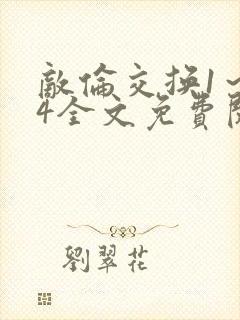 敵倫交換1~
4全文免費閱
劉翠花